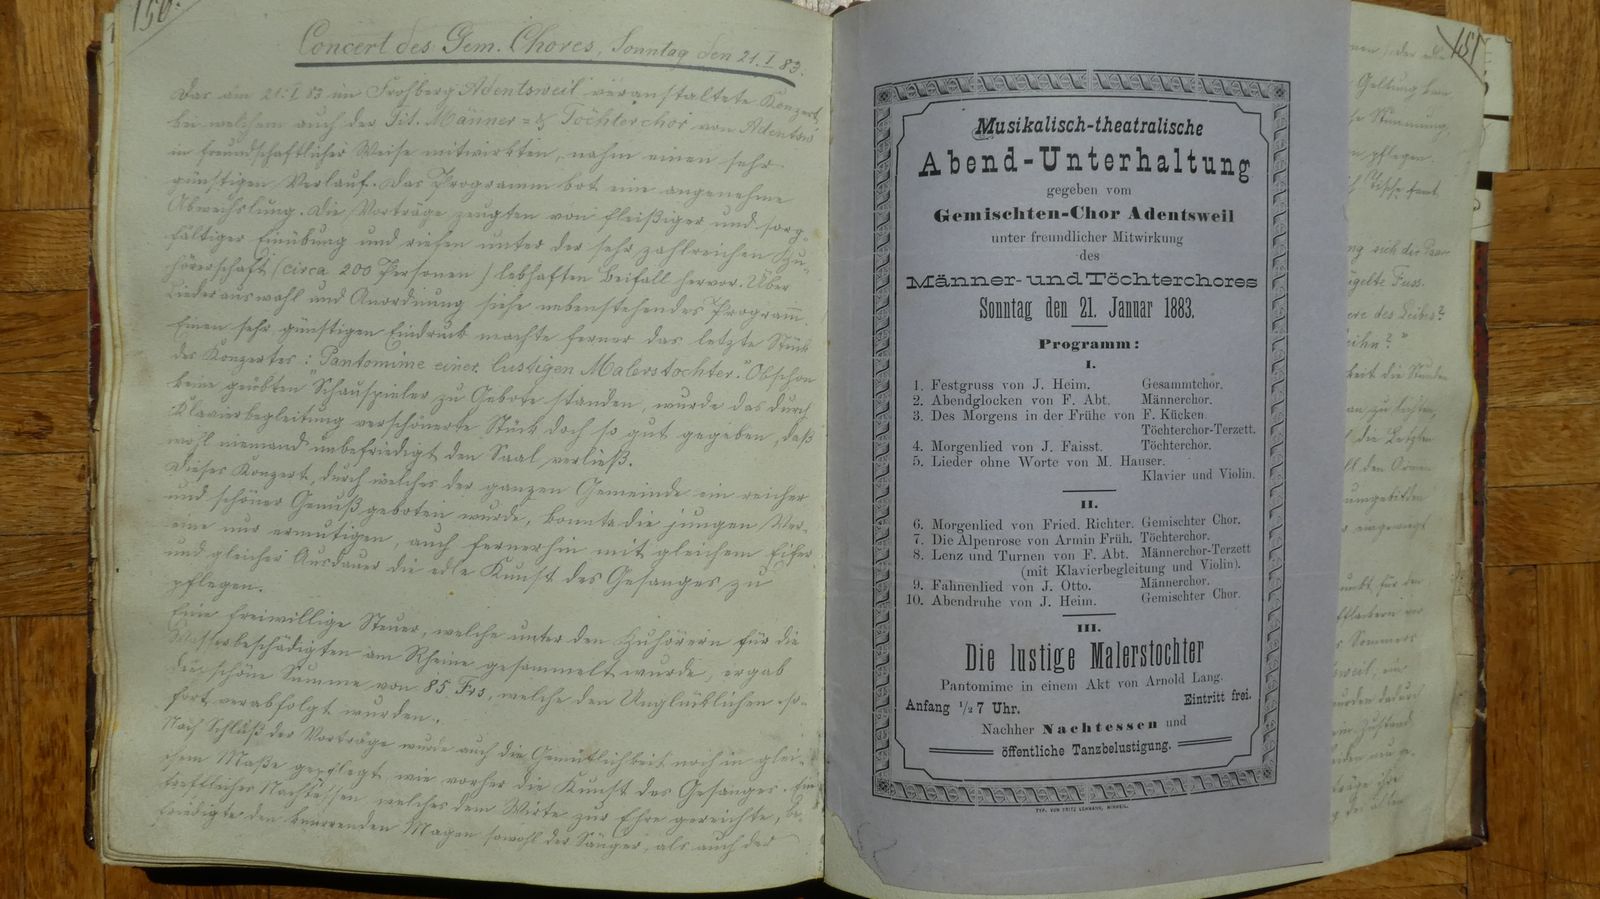 150.
Concert des Gem. Chores, Sonntag den 21. I. 83.
Das am 21. I 83 im Frohberg Adentsweil veranstaltete Konzert,
bei welchem auch der Tit. Männer- & Töchterchor von Adentsw.
in freundschaftlicher Weise mitwirkten, nahm einen sehr
günstigen Verlauf. Das Programm bot eine angenehme
Abwechslung. Die Vorträge zeugten von fleißiger und sorg-
fältiger Einübung und riefen unter der sehr zahlreichen Zu-
hörerschaft (circa 200 Personen) lebhaften Beifall hervor. Über
Liederauswahl und Anordnung siehe nebenstehendes Programm.
Einen sehr günstigen Eindruck machte ferner das letzte Stück
des Konzertes: "Pantomime einer lustigen Malerstochter." Obschon
keine geübten Schauspieler zu Gebote standen, wurde das durch
Klavierbegleitung verschönerte Stück doch so gut gegeben, daß
wohl niemand unbefriedigt den Saal verließ.
Dieses Konzert, durch welches der ganzen Gemeinde ein reicher
und schöner Genuß geboten wurde, konnte die jungen Ver-
eine nur ermutigen, auch fernerhin mit gleichem Eifer
und gleicher Ausdauer die edle Kunst des Gesanges zu
pflegen.
Eine freiwillige Steuer, welche unter den Zuhörern für die
Wasserbeschädigten am Rheine gesammelt wurde, ergab
die schöne Summe von 85 Frs, welche den Unglücklichen so-
fort verabfolgt wurden.
Nach Schluß der Vorträge wurde auch die Gemütlichkeit noch in glei-
chem Maße gepflegt wie vorher die Kunst des Gesanges. Ein
treffliches Nachtessen, welches dem Wirte zur Ehre gereichte, be-
friedigte den knurrenden Magen sowohl der Sänger, als auch der
Musikalisch-theatralische
Abend-Unterhaltung
gegeben vom
Gemischten-Chor Adentsweil
unter freundlicher Mitwirkung
des
Männer- und Töchterchores
Sonntag den 21. Januar 1883.
Programm:
I.
1. Festgruss von J. Heim. Gesammtchor.
2. Abendglocken von F. Abt. Männerchor.
3. Des Morgens in der Frühe von F. Kücken.
Töchterchor-Terzett.
4. Morgenlied von J. Faisst. Töchterchor.
5. Lieder ohne Worte von M. Hauser.
Klavier und Violin.
II.
6. Morgenlied von Fried. Richter. Gemischter Chor.
7. Die Alpenrose von Armin Früh. Töchterchor.
8. Lenz und Turnen von F. Abt. Männerchor-Terzett
(mit Klavierbegleitung und Violin).
9. Fahnenlied von J. Otto. Männerchor.
10. Abendruhe von J. Heim. Gemischter Chor.
III.
Die lustige Malerstochter
Pantomime in einem Akt von Arnold Lang.
Anfang ½7 Uhr. Eintritt frei.
Nachher Nachtessen und
öffentliche Tanzbelustigung.
TYP. VON FRITZ LEHMANN, HINWEIL.
151
Geltung
Stimmung,
pflegen.
sich der
Fuss.
des Leibes?
ihn?"
die Stunden
zu
die Letzten
den
für den
Sommers
ein
Zustand